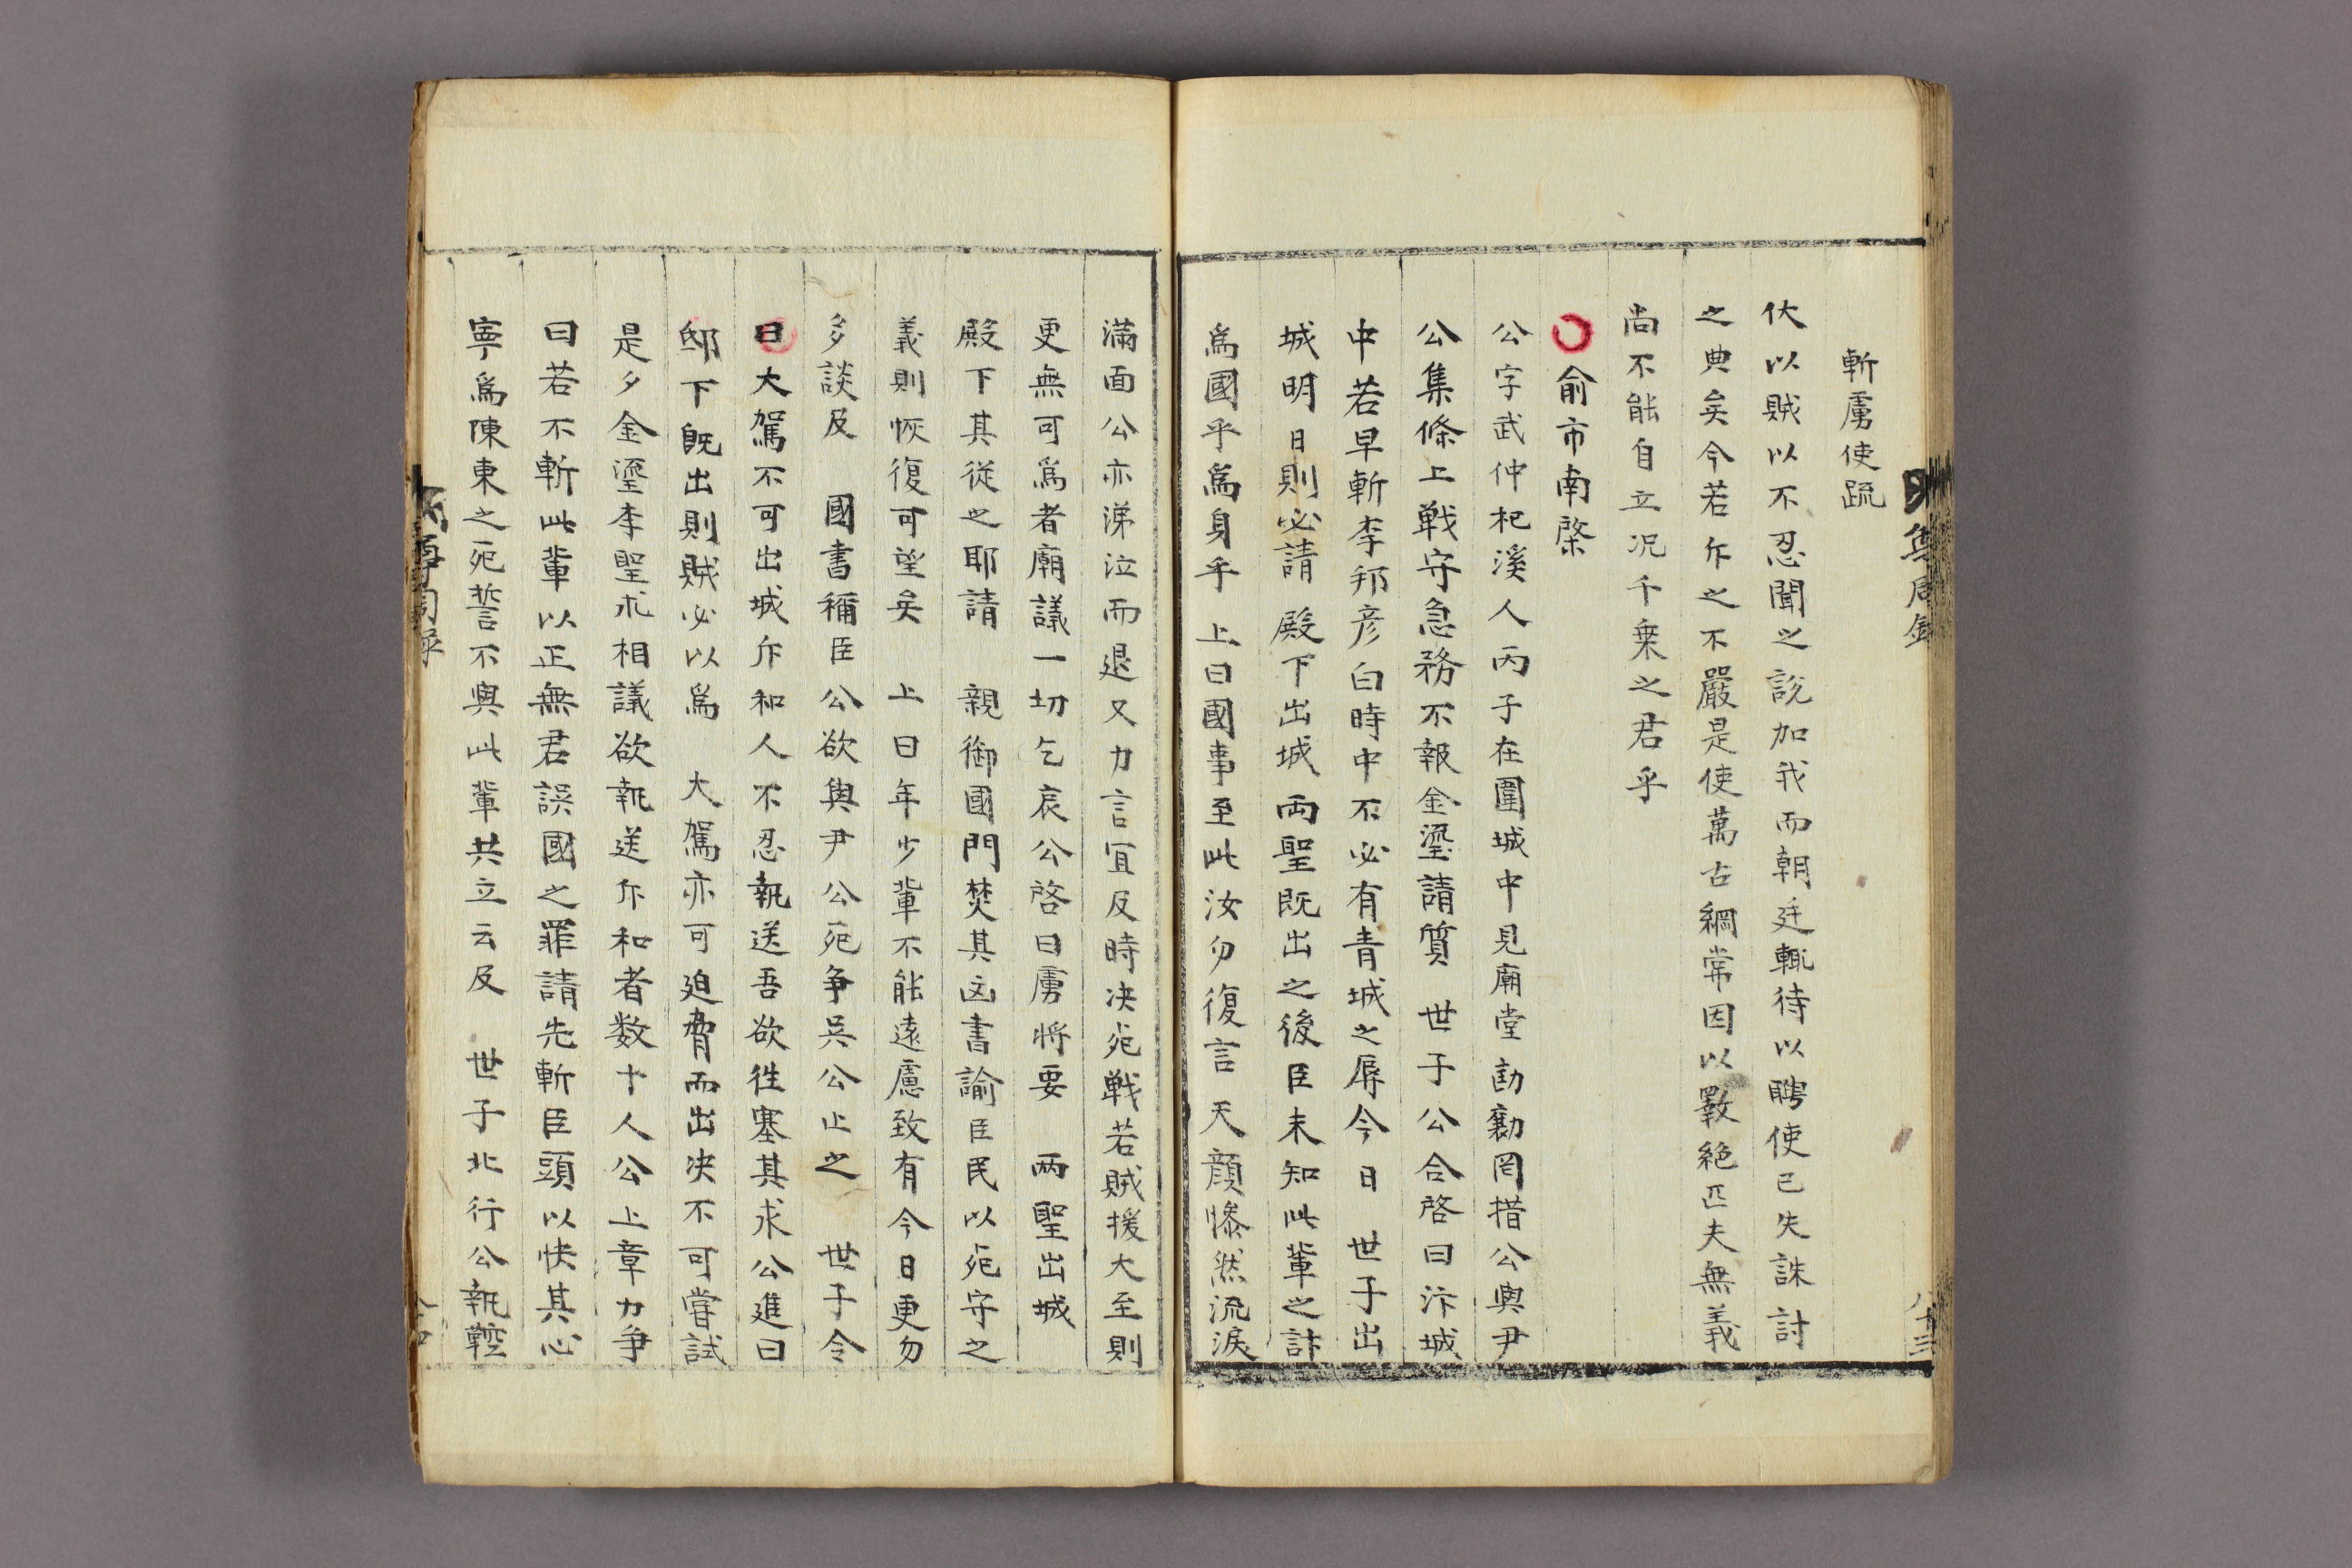 斬虜使疏
伏以賊以不忍聞之說加我而朝廷輒待以聘使已失誅討
之典矣今若斥之不嚴是使萬古綱常因以斁絶匹夫無義
尚不能自立况千乗之君乎
俞市南棨
公字武仲杞溪人丙子在圍城中見廟堂劻勷罔措公與尹
公集條上戦守急務不報金瑬請質 世子公合啓曰汴城
中若早斬李邦彦白時中不必有青城之辱今日 世子出
城明日則必請 殿下出城兩聖既出之後臣未知此軰之計
爲國乎爲身乎 上曰國事至此汝勿復言 天顔慘然流淚
滿面公亦涕泣而退又力言宜及時决死戦若賊援大至則
更無可爲者廟議一切乞哀公啓曰虜將要 两聖出城
殿下其從之耶請 親御國門焚其凶書諭臣民以死守之
義則恢復可望矣 上曰年少軰不能遠慮致有今日更勿
多談及 國書稱臣公欲與尹公死争吴公止之 世子令
曰大駕不可出城斥和人不忍執送吾欲徃塞其求公進曰
邸下既出則賊必以爲 大駕亦可迫脅而出决不可嘗試
是夕金瑬李聖求相議欲執送斥和者数十人公上章力争
曰若不斬此軰以正無君誤國之罪請先斬臣頭以快其心
寧爲陳東之死誓不與此軰共立云及 世子北行公執鞚